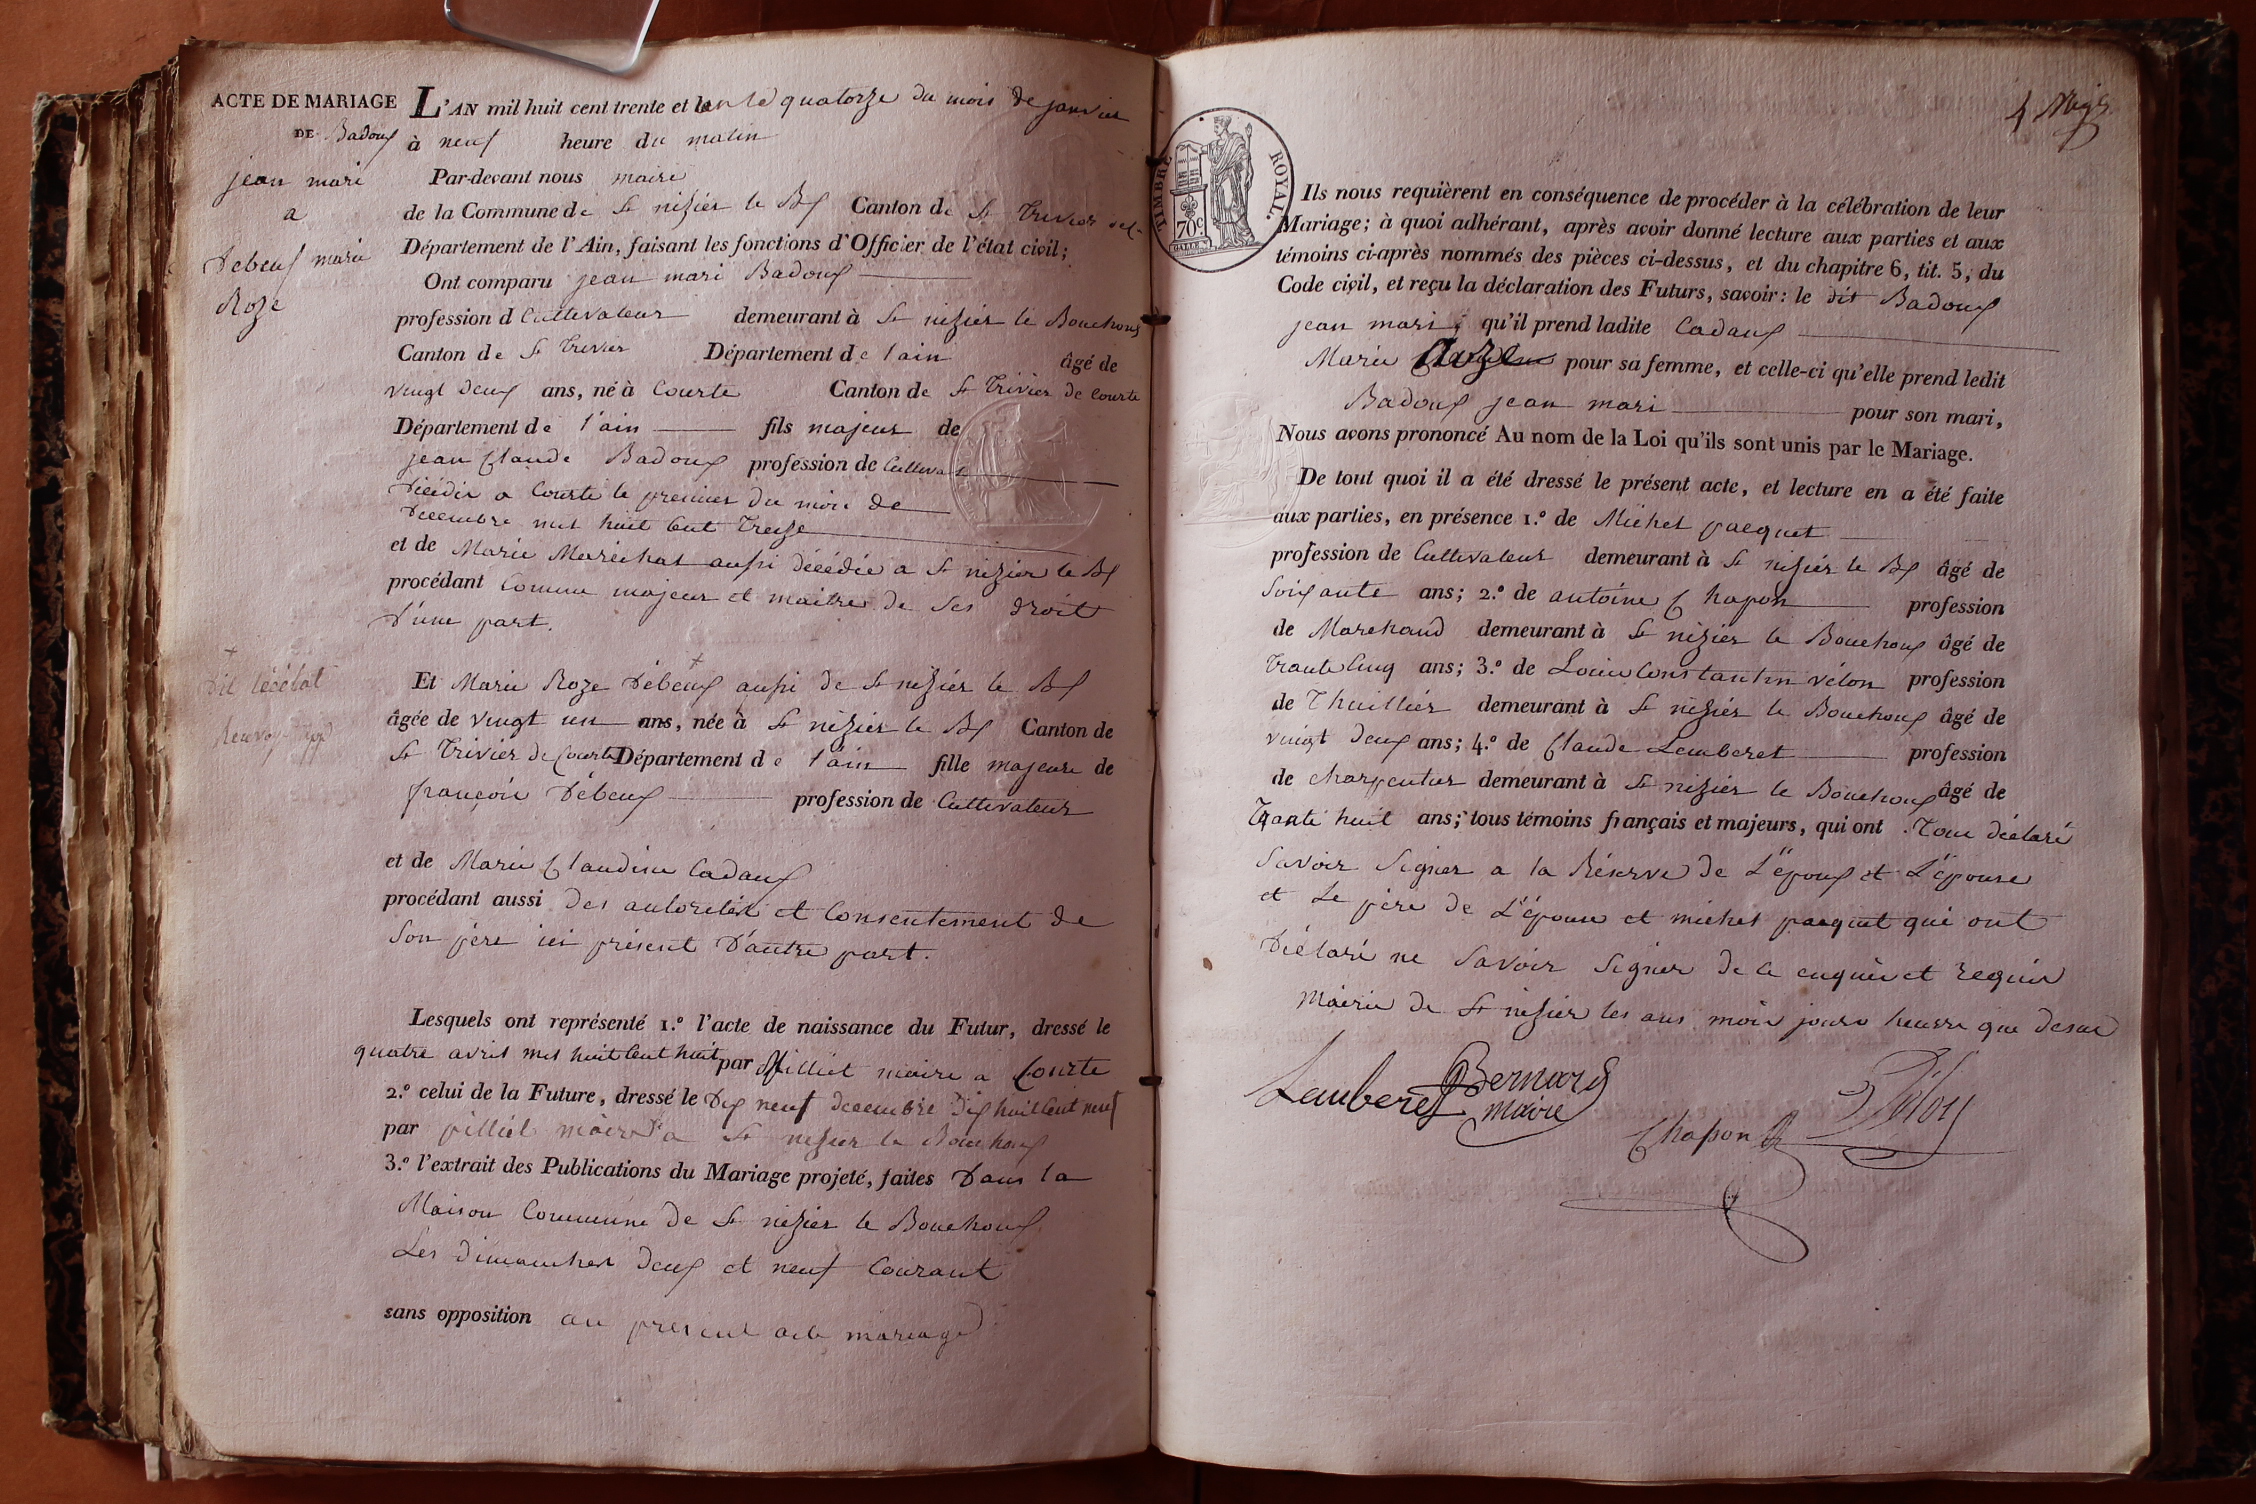 ACTE DE MARIAGE
DE Badoux
jean mari
a
Debeuf marie
Roze
L'AN mil huit cent trente et un le quatorze du mois de janvier
à neuf heure du matin
Par-devant nous maire
de la Commune de St nizier le Bx Canton de St Trivier
Département de l'Ain, faisant les fonctions d'Officier de l'état civil;
Ont comparu jean mari Badoux
profession d Cultivateur demeurant à St nizier le Bouchoux
Canton de St Trivier Département de lain âgé de
vingt deux ans, né à Courte Canton de St Trivier de Courte
Département de l'ain fils majeur de
jean Claude Badoux profession de Cultivat
Décédé a Courte le premier du mois de
Décembre mil huit Cent Treize
et de Marie Maréchal aussi décédée a St nizier le Bx
procédant Comme majeur et maitre de Ses droit
D'une part.
+
Dit
Renvoy
+
Et Marie Roze Débeuf aussi de St nizier le Bx
âgée de vingt un ans, née à St nizier le Bx Canton de
St Trivier de Courte Département de l'ain fille majeure de
françois Débeuf profession de Cultivateur
et de Marie Claudine Cadaux
procédant aussi Des autorités et Consentement de
Son père ici présent D'autre part.
Lesquels ont représenté 1.º l'acte de naissance du Futur, dressé le
quatre avril mil huit Cent huit par Pilliet maire a Courte
2.º celui de la Future, dressé le Dix neuf décembre Dix huit Cent neuf
par pilliet maire a St nizier le Bouchoux
3.º l'extrait des Publications du Mariage projeté, faites Dans la
Maison Commune de St nizier le Bouchoux
Les dimanches deux et neuf Courant
sans opposition au présent acte mariage
4
TIMBRE ROYAL.
70c
Ils nous requièrent en conséquence de procéder à la célébration de leur
Mariage; à quoi adhérant, après avoir donné lecture aux parties et aux
témoins ci-après nommés des pièces ci-dessus, et du chapitre 6, tit. 5, du
Code civil, et reçu la déclaration des Futurs, savoir: le dit Badoux
jean mari; qu'il prend ladite Cadaux
Marie pour sa femme, et celle-ci qu'elle prend ledit
Badoux jean mari pour son mari,
Nous avons prononcé Au nom de la Loi qu'ils sont unis par le Mariage.
De tout quoi il a été dressé le présent acte, et lecture en a été faite
aux parties, en présence 1.º de Michel pacquet
profession de Cultivateur demeurant à St nizier le Bx âgé de
Soixante ans; 2.º de antoine Chapon profession
de Marchand demeurant à St nizier le Bouchoux âgé de
Trante Cinq ans; 3.º de Louis Constantin vélon profession
de Thuillier demeurant à St nizier le Bouchoux âgé de
vingt deux ans; 4.º de Claude Lamberet profession
de charpentier demeurant à St nizier le Bouchoux âgé de
Trante huit ans; tous témoins français et majeurs, qui ont Tous déclaré
Savoir Signer a la Réserve de L'époux et L'épouse
et Le père de L'épouse et michel pacquet qui ont
Déclaré ne Savoir Signer de ce enquis et requis
Mairie de St nizier les ans mois jours heure que dessus
Lamberet Bernard
maire
Chapon Vélon